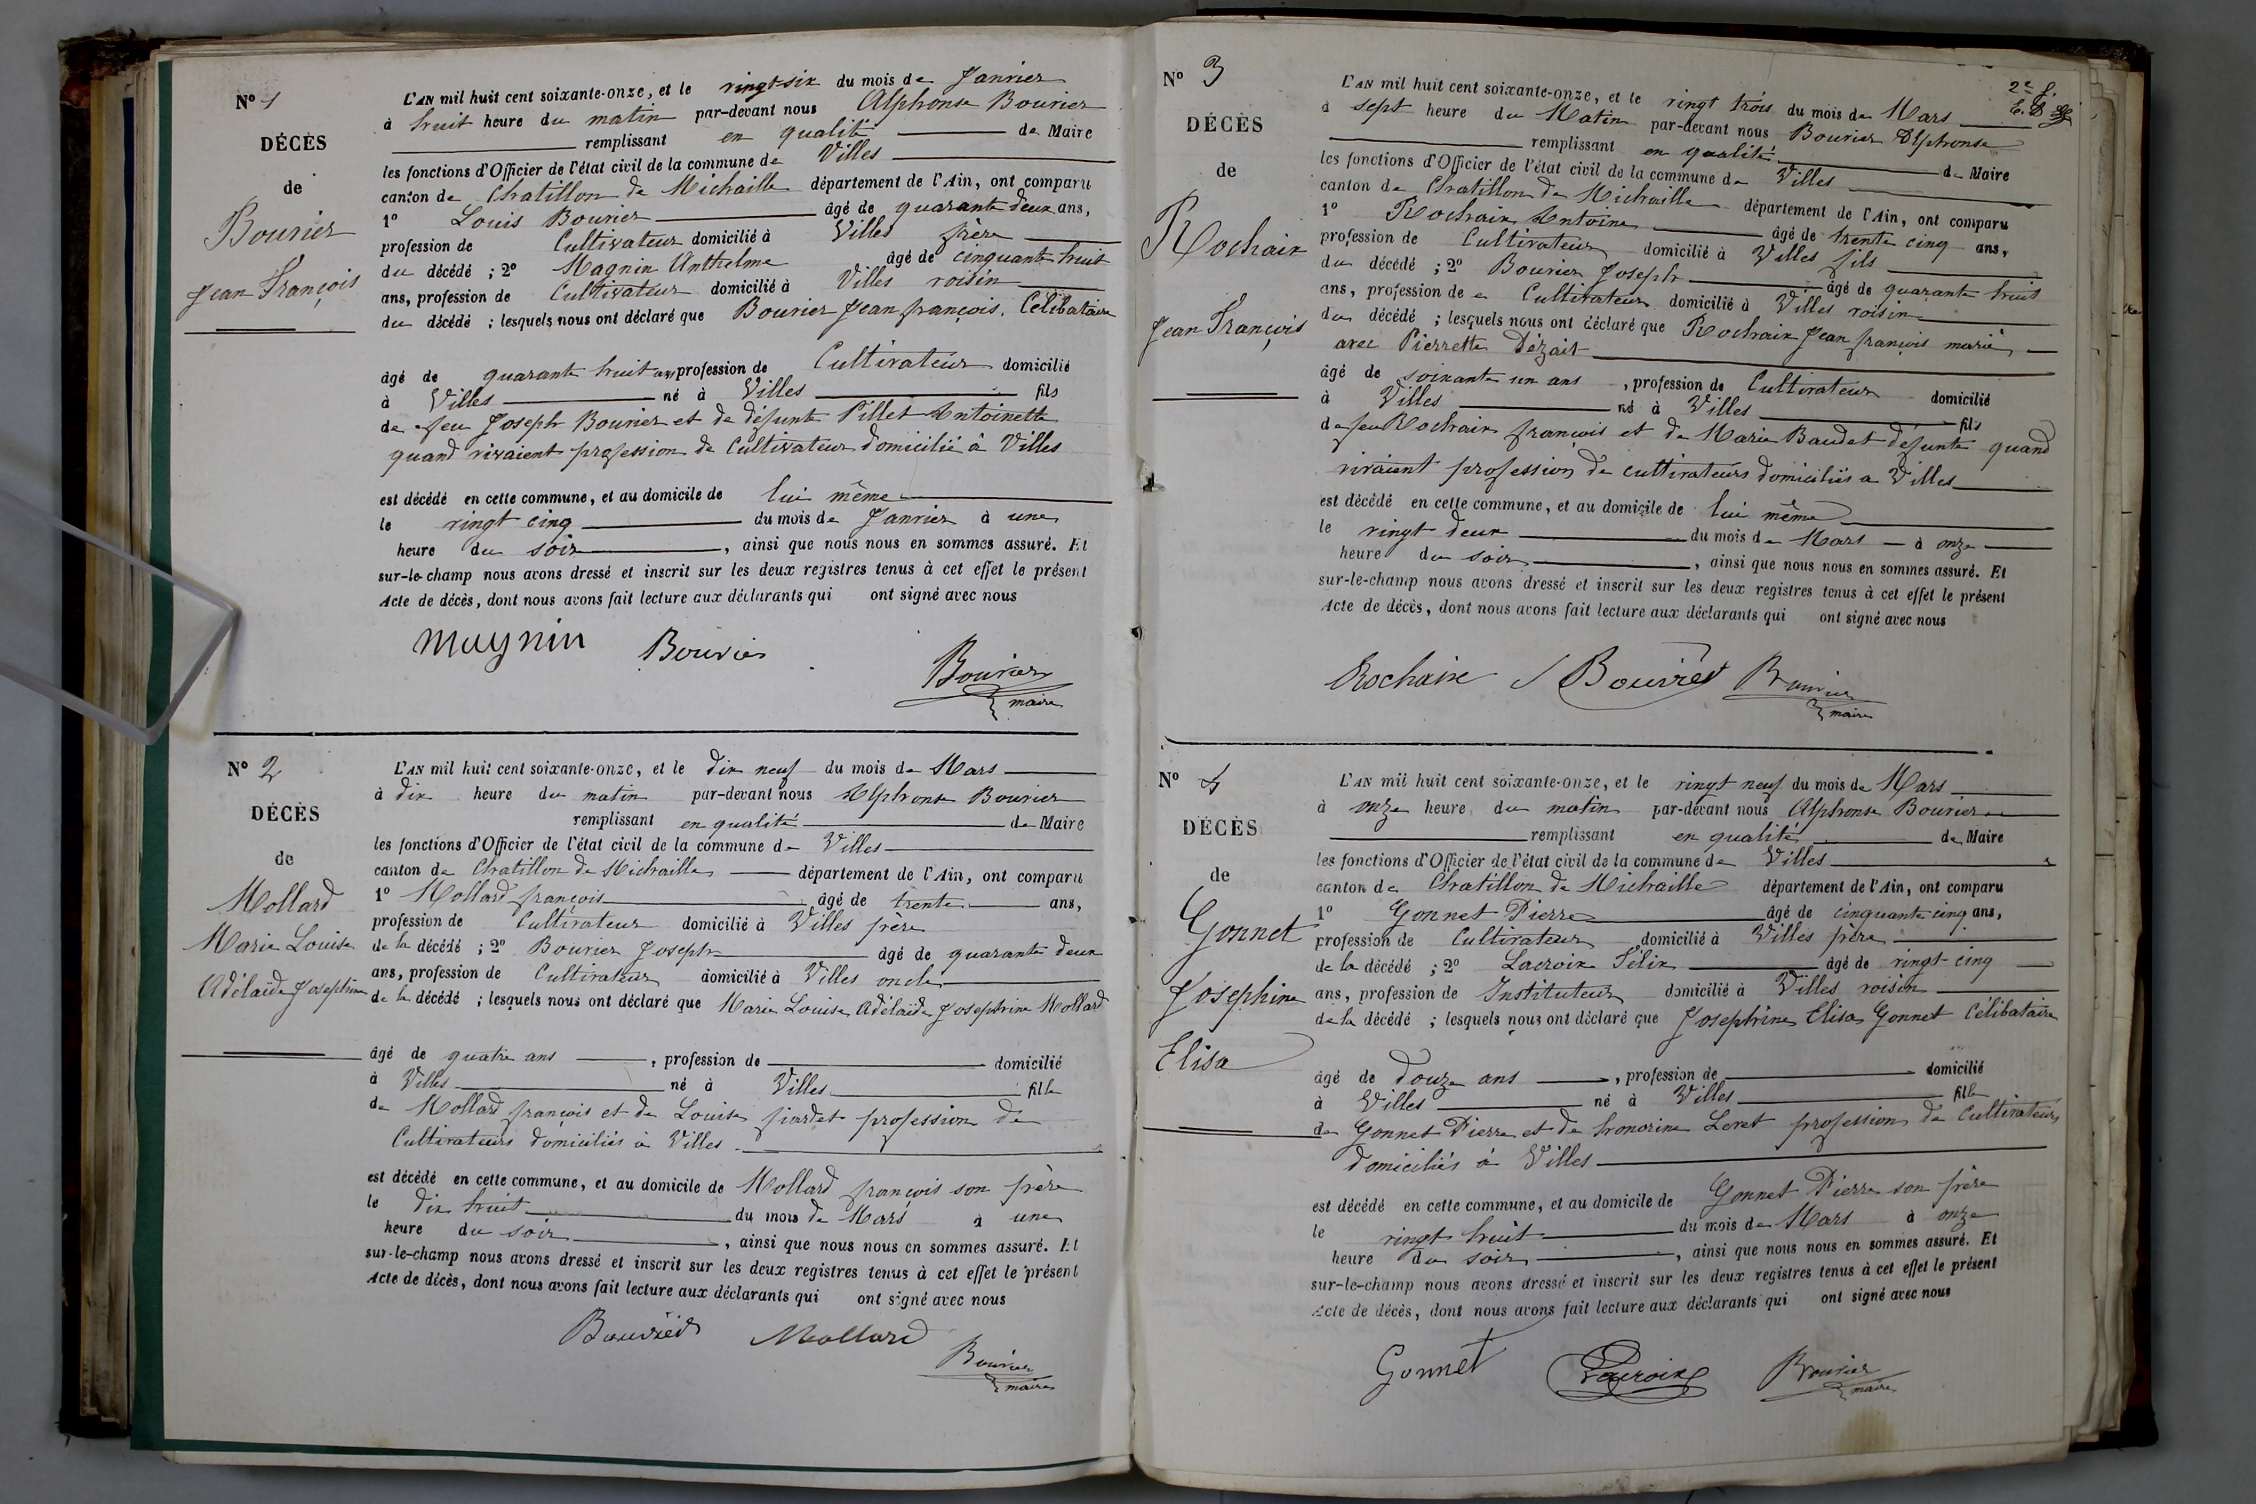 N° 1
DÉCÈS
de
Bouvier
Jean François
L'AN mil huit cent soixante-onze, et le vingt-six du mois de Janvier
à huit heure du matin par-devant nous Alphonse Bouvier
remplissant en qualité de Maire
les fonctions d'Officier de l'état civil de la commune de Villes
canton de Chatillon de Michaille département de l'Ain, ont comparu
1° Louis Bouvier âgé de quarante deux ans,
profession de Cultivateur domicilié à Villes frère
du décédé ; 2° Magnin Anthelme âgé de cinquante huit
ans, profession de Cultivateur domicilié à Villes voisin
du décédé ; lesquels nous ont déclaré que Bouvier Jean françois, Célibataire
âgé de quarante huit ans profession de Cultivateur domicilié
à Villes né à Villes fils
de feu Joseph Bouvier et de défunte Pillet Antoinette
quand vivaient profession de Cultivateur domicilié à Villes
est décédé en cette commune, et au domicile de lui même
le vingt cinq du mois de Janvier à une
heure du soir , ainsi que nous nous en sommes assuré. Et
sur-le-champ nous avons dressé et inscrit sur les deux registres tenus à cet effet le présent
Acte de décès, dont nous avons fait lecture aux déclarants qui ont signé avec nous
Magnin Bouvier Bouvier
maire
N° 2
DÉCÈS
de
Mollard
Marie Louise
Adélaïde Josephine
L'AN mil huit cent soixante-onze, et le dix neuf du mois de Mars
à dix heure du matin par-devant nous Alphonse Bouvier
remplissant en qualité de Maire
les fonctions d'Officier de l'état civil de la commune de Villes
canton de Chatillon de Michaille département de l'Ain, ont comparu
1° Mollard françois âgé de trente ans,
profession de Cultivateur domicilié à Villes frère
de la décédé ; 2° Bouvier Joseph âgé de quarante deux
ans, profession de Cultivateur domicilié à Villes oncle
de la décédé ; lesquels nous ont déclaré que Marie Louise Adélaïde Josephine Mollard
âgé de quatre ans , profession de domicilié
à Villes né à Villes fille
de Mollard françois et de Louise profession de
Cultivateurs domiciliés à Villes
est décédé en cette commune, et au domicile de Mollard françois son frère
le dix huit du mois de Mars à une
heure du soir , ainsi que nous nous en sommes assuré. Et
sur-le-champ nous avons dressé et inscrit sur les deux registres tenus à cet effet le présent
Acte de décès, dont nous avons fait lecture aux déclarants qui ont signé avec nous
Bouvier Mollard Bouvier
maire
N° 3
DÉCÈS
de
Rochaix
Jean François
2e f.
L'AN mil huit cent soixante-onze, et le vingt trois du mois de Mars
à sept heure du Matin par-devant nous Bouvier Alphonse
remplissant en qualité de Maire
les fonctions d'Officier de l'état civil de la commune de Villes
canton de Chatillon de Michaille département de l'Ain, ont comparu
1° Rochaix Antoine âgé de trente cinq ans,
profession de Cultivateur domicilié à Villes fils
du décédé ; 2° Bouvier Joseph âgé de quarante huit
ans, profession de Cultivateur domicilié à Villes voisin
du décédé ; lesquels nous ont déclaré que Rochaix Jean françois marié
avec Pierrette Dézait
âgé de soixante un ans , profession de Cultivateur domicilié
à Villes né à Villes fils
de feu Rochaix françois et de Marie Baudet défunte quand
vivaient profession de cultivateurs domiciliés a Villes
est décédé en cette commune, et au domicile de lui même
le vingt deux du mois de Mars à onze
heure du soir , ainsi que nous nous en sommes assuré. Et
sur-le-champ nous avons dressé et inscrit sur les deux registres tenus à cet effet le présent
Acte de décès, dont nous avons fait lecture aux déclarants qui ont signé avec nous
Rochaix J Bouvier Bouvier
maire
N° 4
DÉCÈS
de
Gonnet
Josephine
Elisa
L'AN mil huit cent soixante-onze, et le vingt neuf du mois de Mars
à onze heure du matin par-devant nous Alphonse Bouvier
remplissant en qualité de Maire
les fonctions d'Officier de l'état civil de la commune de Villes
canton de Chatillon de Michaille département de l'Ain, ont comparu
1° Gonnet Pierre âgé de cinquante cinq ans,
profession de Cultivateur domicilié à Villes père
de la décédé ; 2° Lacroix Félix âgé de vingt cinq
ans, profession de Instituteur domicilié à Villes voisin
de la décédé ; lesquels nous ont déclaré que Josephine Elisa Gonnet Célibataire
âgé de douze ans , profession de domicilié
à Villes né à Villes fille
de Gonnet Pierre et de honorine Levet profession de Cultivateurs
domiciliés à Villes
est décédé en cette commune, et au domicile de Gonnet Pierre son frère
le vingt huit du mois de Mars à onze
heure du soir , ainsi que nous nous en sommes assuré. Et
sur-le-champ nous avons dressé et inscrit sur les deux registres tenus à cet effet le présent
Acte de décès, dont nous avons fait lecture aux déclarants qui ont signé avec nous
Gonnet Lacroix Bouvier
maire